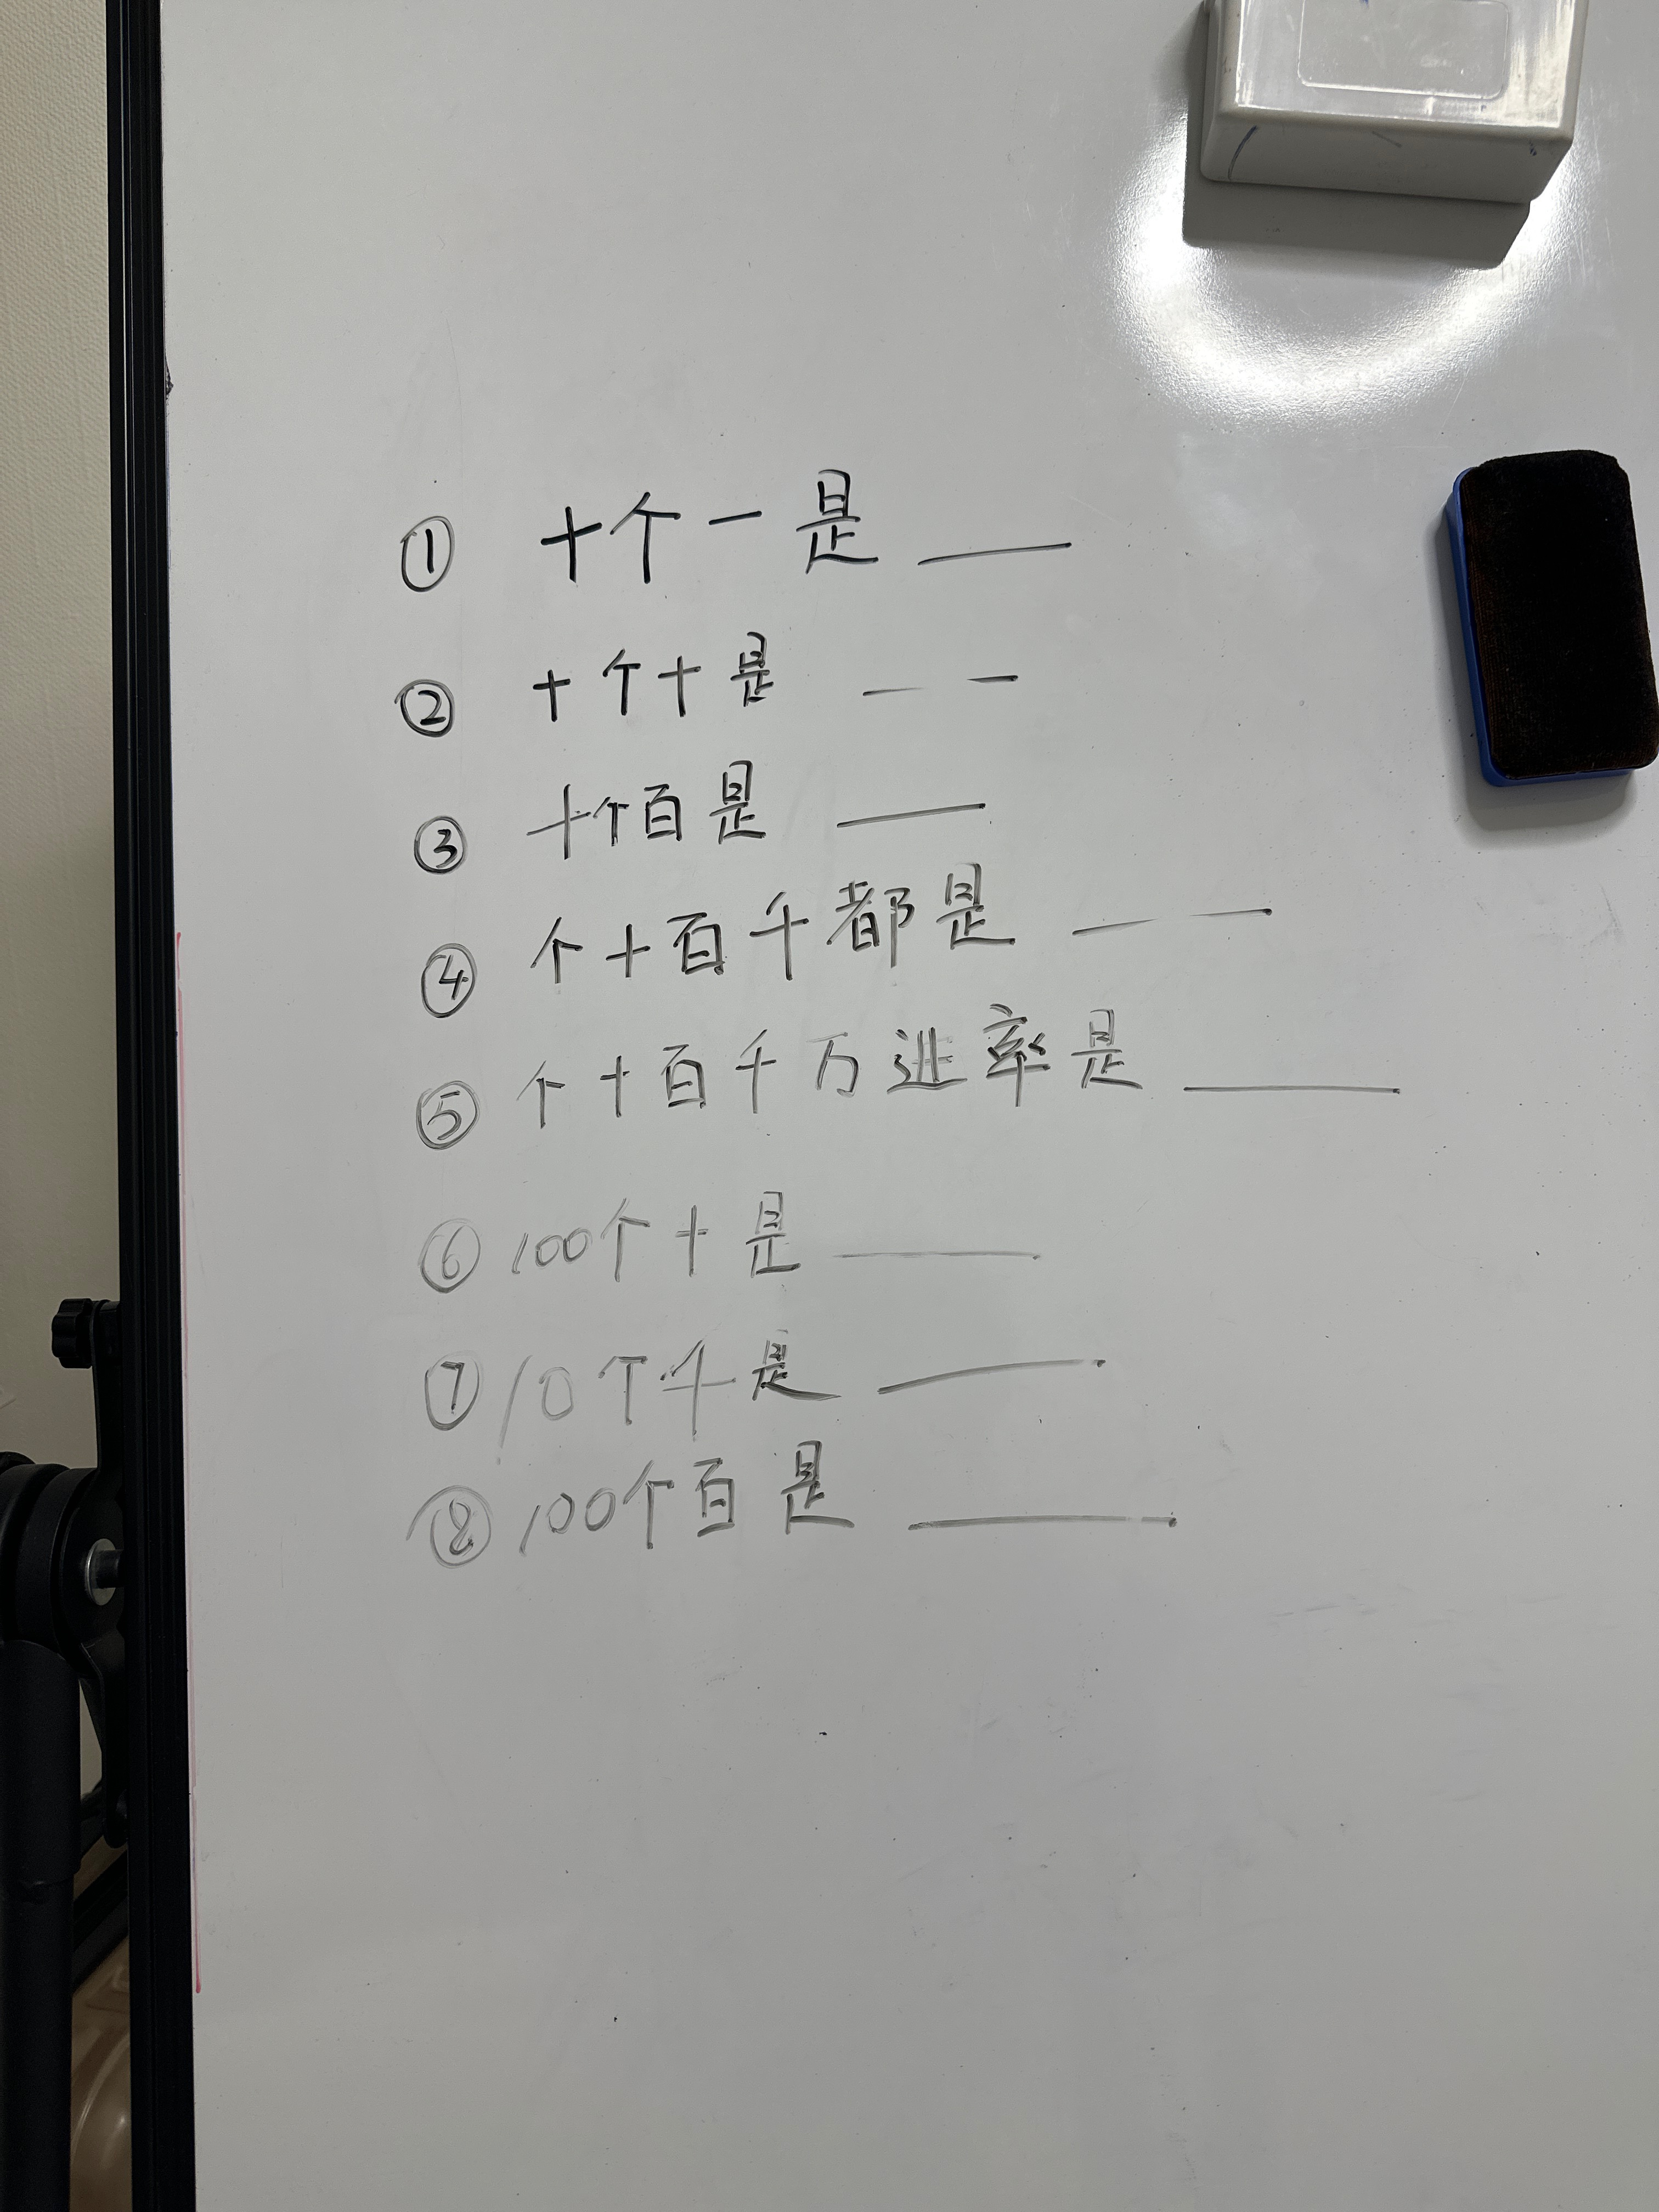 ① 十个一是 ____
② 十个十是 _ _
③ 十个百是 ____
④ 个十百千都是 _ _
⑤ 个十百千万进率是 ____
⑥ 100个十是 ____
⑦ 10个千是 ____
⑧ 100个百是 ____